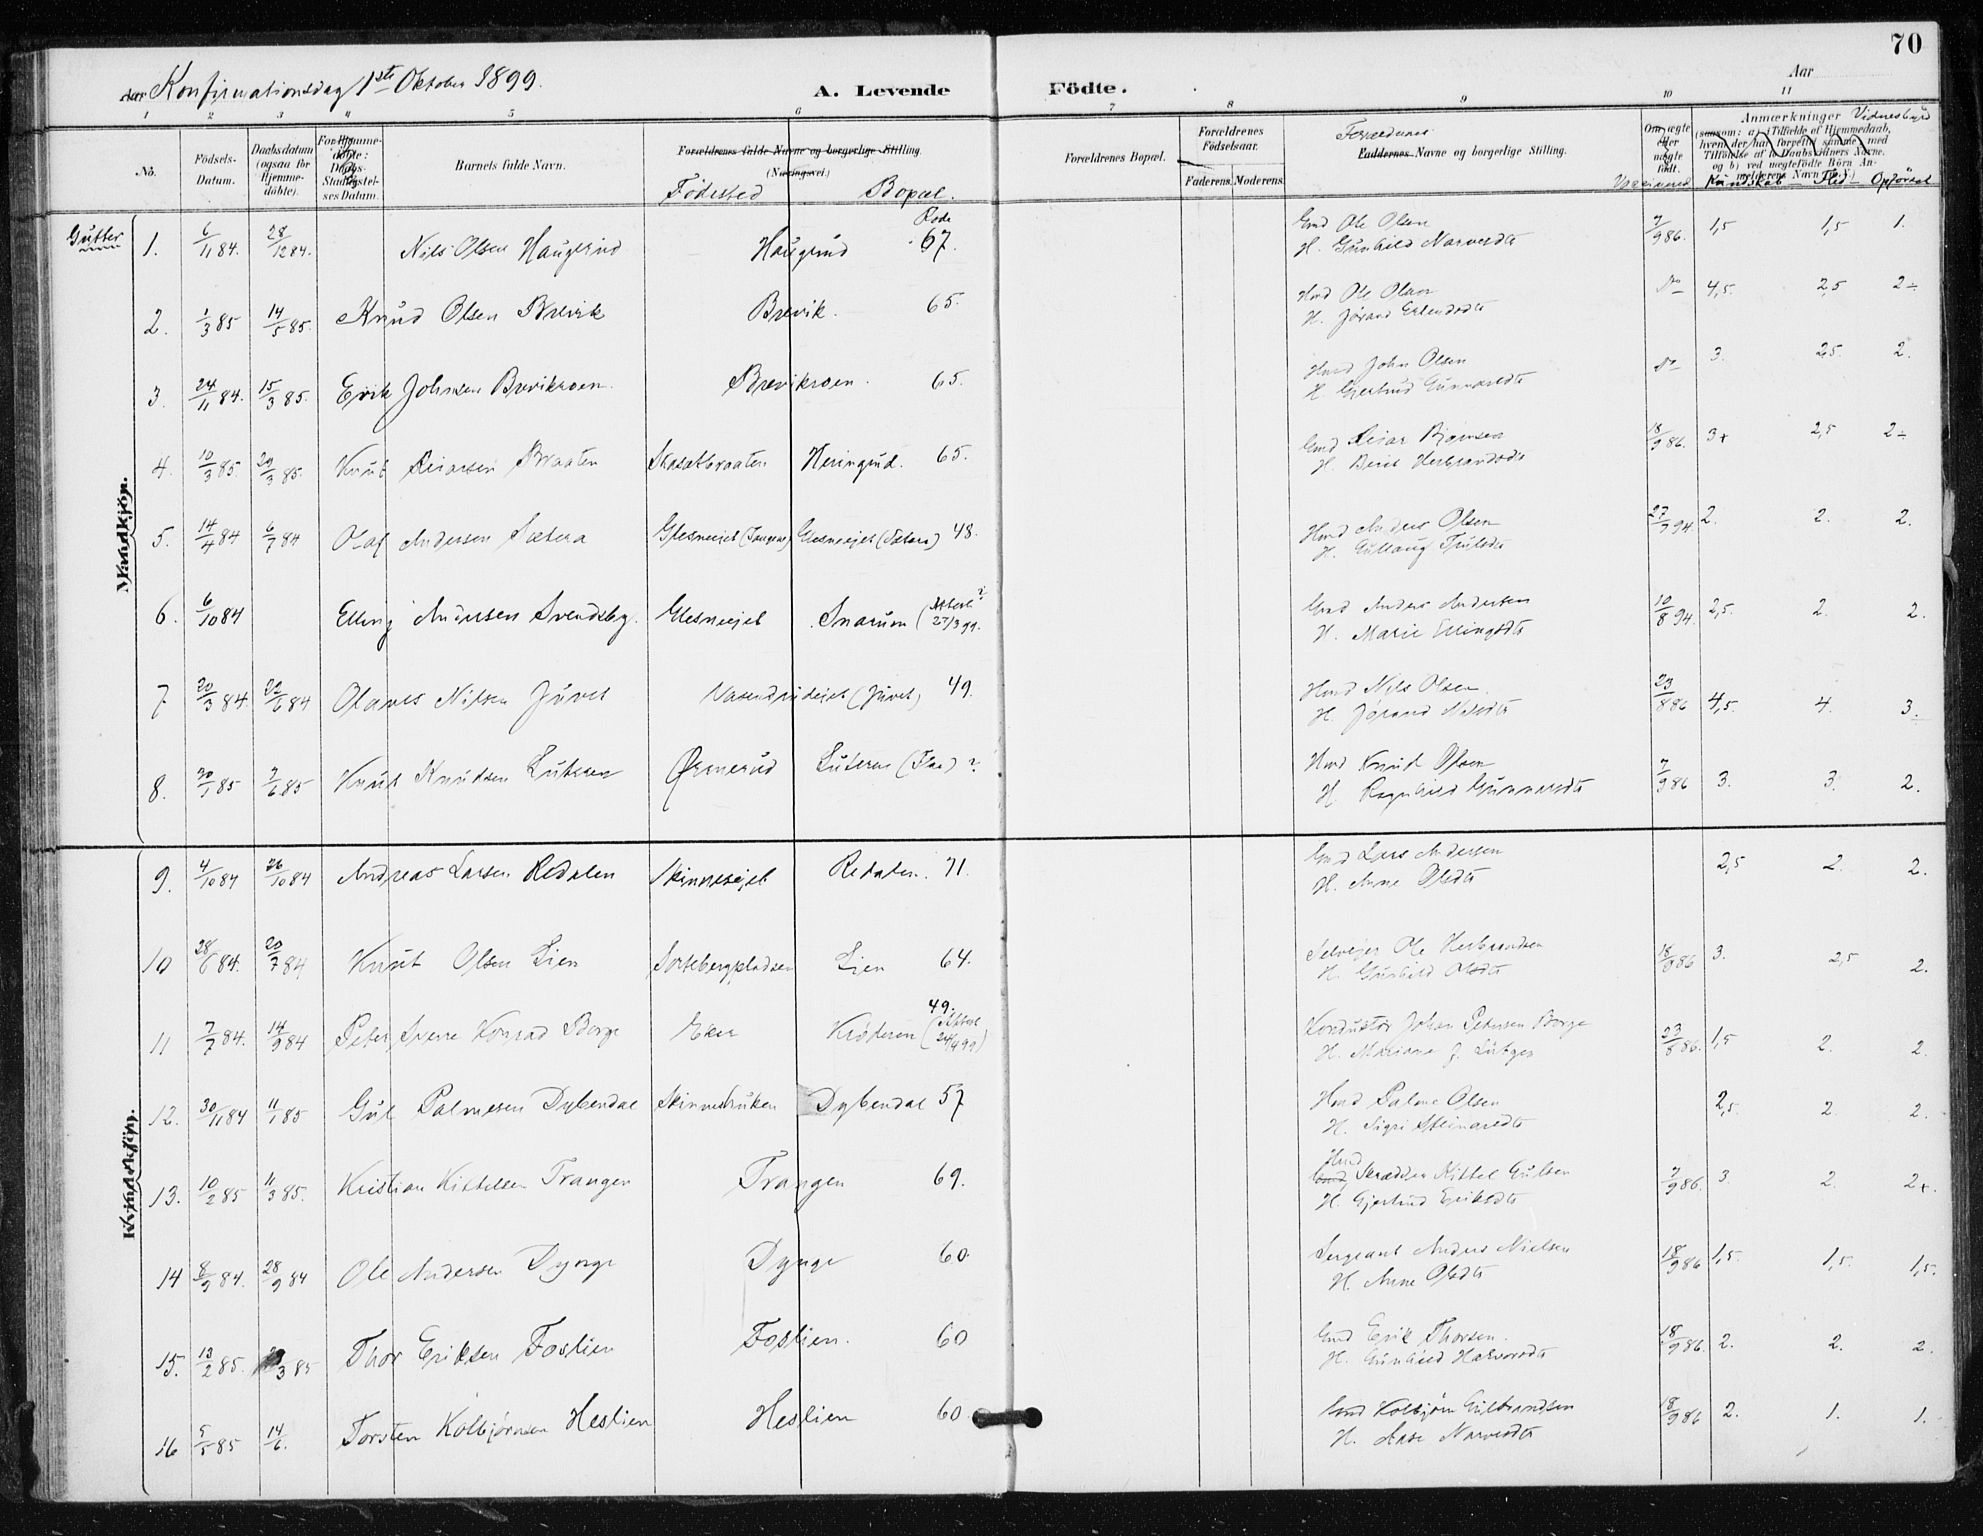 70
Aar Konfirmationsdag 1ste Oktober 1899.
A. Levende Födte.
Aar
1 2 3 4 5 6 7 8 9 10 11
No.
Födsels-Datum.
Daabsdatum (ogsaa for Hjemmedöbte).
Barnets fulde Navn.
Forældrenes fulde Navne og borgerlige Stilling. (Næringsvei.)
Födested Bopæl.
Forældrenes Bopæl.
Forældrenes Födselsaar.
Faderens. Moderens.
Forældrenes
Faddernes Navne og borgerlige Stilling.
Om ægte eller uægte födt.
Vaccineret
Anmærkninger Vidnesbyrd
(saasom: a) i Tilfælde af Hjemmedaab, hvem der har forrettet samme med Tilföielse af to Daabsvidners Navne, og b) ved uægtefödte Börn Anmelderens Navn o. s. v.)
Kundskab Flid Opförsel
Gutter
Mandkjön.
Rode
1. 6/11 84. 28/12 84. Nils Olsen Haugerud Haugerud 67. Gmd Ole Olsen 7/9 86. 1,5 1,5 1.
H. Gunhild Narvesdtr
2. 1/3 85 14/5 85. Knud Olsen Brevik Brevik. 65. Hmd Ole Olsen Do 4,5. 2,5 2÷
H. Jørand Erlendsdtr
3. 24/11 84. 15/3 85. Erik Johnsen Brevikroen. Brevikroen. 65. Hmd John Olsen Do 3. 2,5. 2.
H. Gjertrud Gunnarsdtr
4. 10/3 85. 29/3 85. Knut Reiarsen Braaten Skasetbraaten Heringrud. 65. Gmd Reiar Bjørnsen 18/9 86. 3+ 2,5 2÷
H. Berit Herbrandsdtr
5. 14/4 84 6/7 84 Olaf Andersen Sætera Glesneejet (Tangen) Glesneejet (Sætera) 48. Hmd Anders Olsen 27/9 94 2. 2. 2.
H. Gullaug Trulsdtr
6. 6/10 84 Elling Andersen Svendsby. Glesneejet Snarum (Attest 27/3 99. ? Gmd Anders Andersen 10/8 94. 2,5. 2. 2.
H. Marie Ellingsdtr
7 20/3 84. 22/6 84 Olaves Nilsen Juvet Vasendrudejet (Juvet) 49. Hmd Nils Olsen. 23/8 86 4,5. 4. 3.
H. Jørand Nilsdtr
8. 30/1 85 7/6 85 Knut Knudsen Luteren Ørmerud Luteren (Flaa) ? Hmd Knut Olsen 7/9 86 3. 3. 2.
H. Ragnhild Gunnarsdtr
Kvindekjön.
9. 4/10 84 26/10 84 Andreas Larsen Redalen Skinnesejet Redalen. 71. Gmd Lars Andersen 2,5 2. 2.
H. Anne Olsdtr
10 28/6 84. 20/7 84 Knut Olsen Lien Sortebergpladsen Lien 64. Selvejer Ole Herbrandsen 18/9 86 3. 2,5 2.
H. Gunhild Olsdtr
11 7/7 84. 14/9 84 Peter Sverre Konrad Borge Eker Krøderen 49. (Attest 24/4 99) Konduktør Johan Petersen Borge 23/8 86. 1,5 2. 2.
H. Mariane J. Lütger
12. 30/11 84 11/1 85 Gul Palmesen Dybendal Skinnesbruken Dybendal 57 Hmd Palme Olsen 2,5. 2. 2.
H. Sigri Steinarsdtr
13. 10/2 85 11/3 85. Kristian Kittelsen Trangen Trangen 69. Hmd Skrædder Kittel Gulsen 7/9 86. 3. 2. 2+.
H. Gjertrud Eriksdtr
14 8/9 84. 28/9 84 Ole Andersen Dynge Dynge 60 Sergeant Anders Nielsen 18/9 86 1,5. 1,5. 1,5.
H. Anne Olsdtr
15. 13/2 85. /3 85 Thor Eriksen Foslien Foslien. 60 Gmd Erik Thorsen. 18/9 86. 2. 2. 2.
H. Gunhild Halvorsdtr
16 5/5 85 14/6. Torsten Kolbjørnsen Heslien Heslien 60. Gmd Kolbjørn Gulbrandsen 18/9 86 2. 1. 1.
H. Aase Narvesdtr